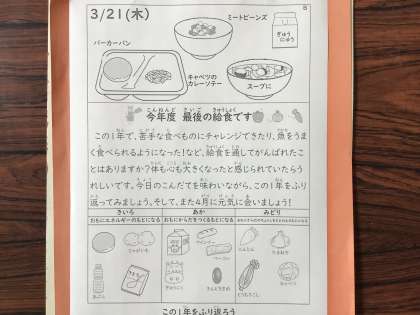 3/21(木)
B
ミートビーンズ
ぎゅうにゅう
バーガーパン
キャベツのカレーソテー
スープに
こんねんど さいご きゅうしょく
今年度 最後の給食です
この1年で、苦手な食べものにチャレンジできたり、魚をうま
く食べられるようになった!など、給食を通してがんばれたこ
とはありますか?体も心も大きくなったと感じられていたらう
れしいです。今日のこんだてを味わいながら、この1年をふり
返ってみましょう。そして、また4月に元気に会いましょう!
きいろ あか みどり
おもにエネルギーのもとになる おもにからだをつくるもとになる
じゃがいも
ウインナー
ベーコン
にんじん
たまねぎ
あぶら
ぎゅうにゅう
きんときまめ
とうもろこし
キャベツ
この1年をふり返ろう